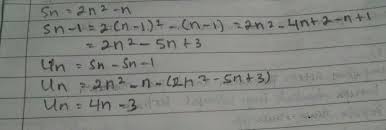 Sn = 2n² - n
Sn-1 = 2(n-1)² - (n-1) = 2n² - 4n + 2 - n + 1
= 2n² - 5n + 3
Un = Sn - Sn-1
Un = 2n² - n - (2n² - 5n + 3)
Un = 4n - 3